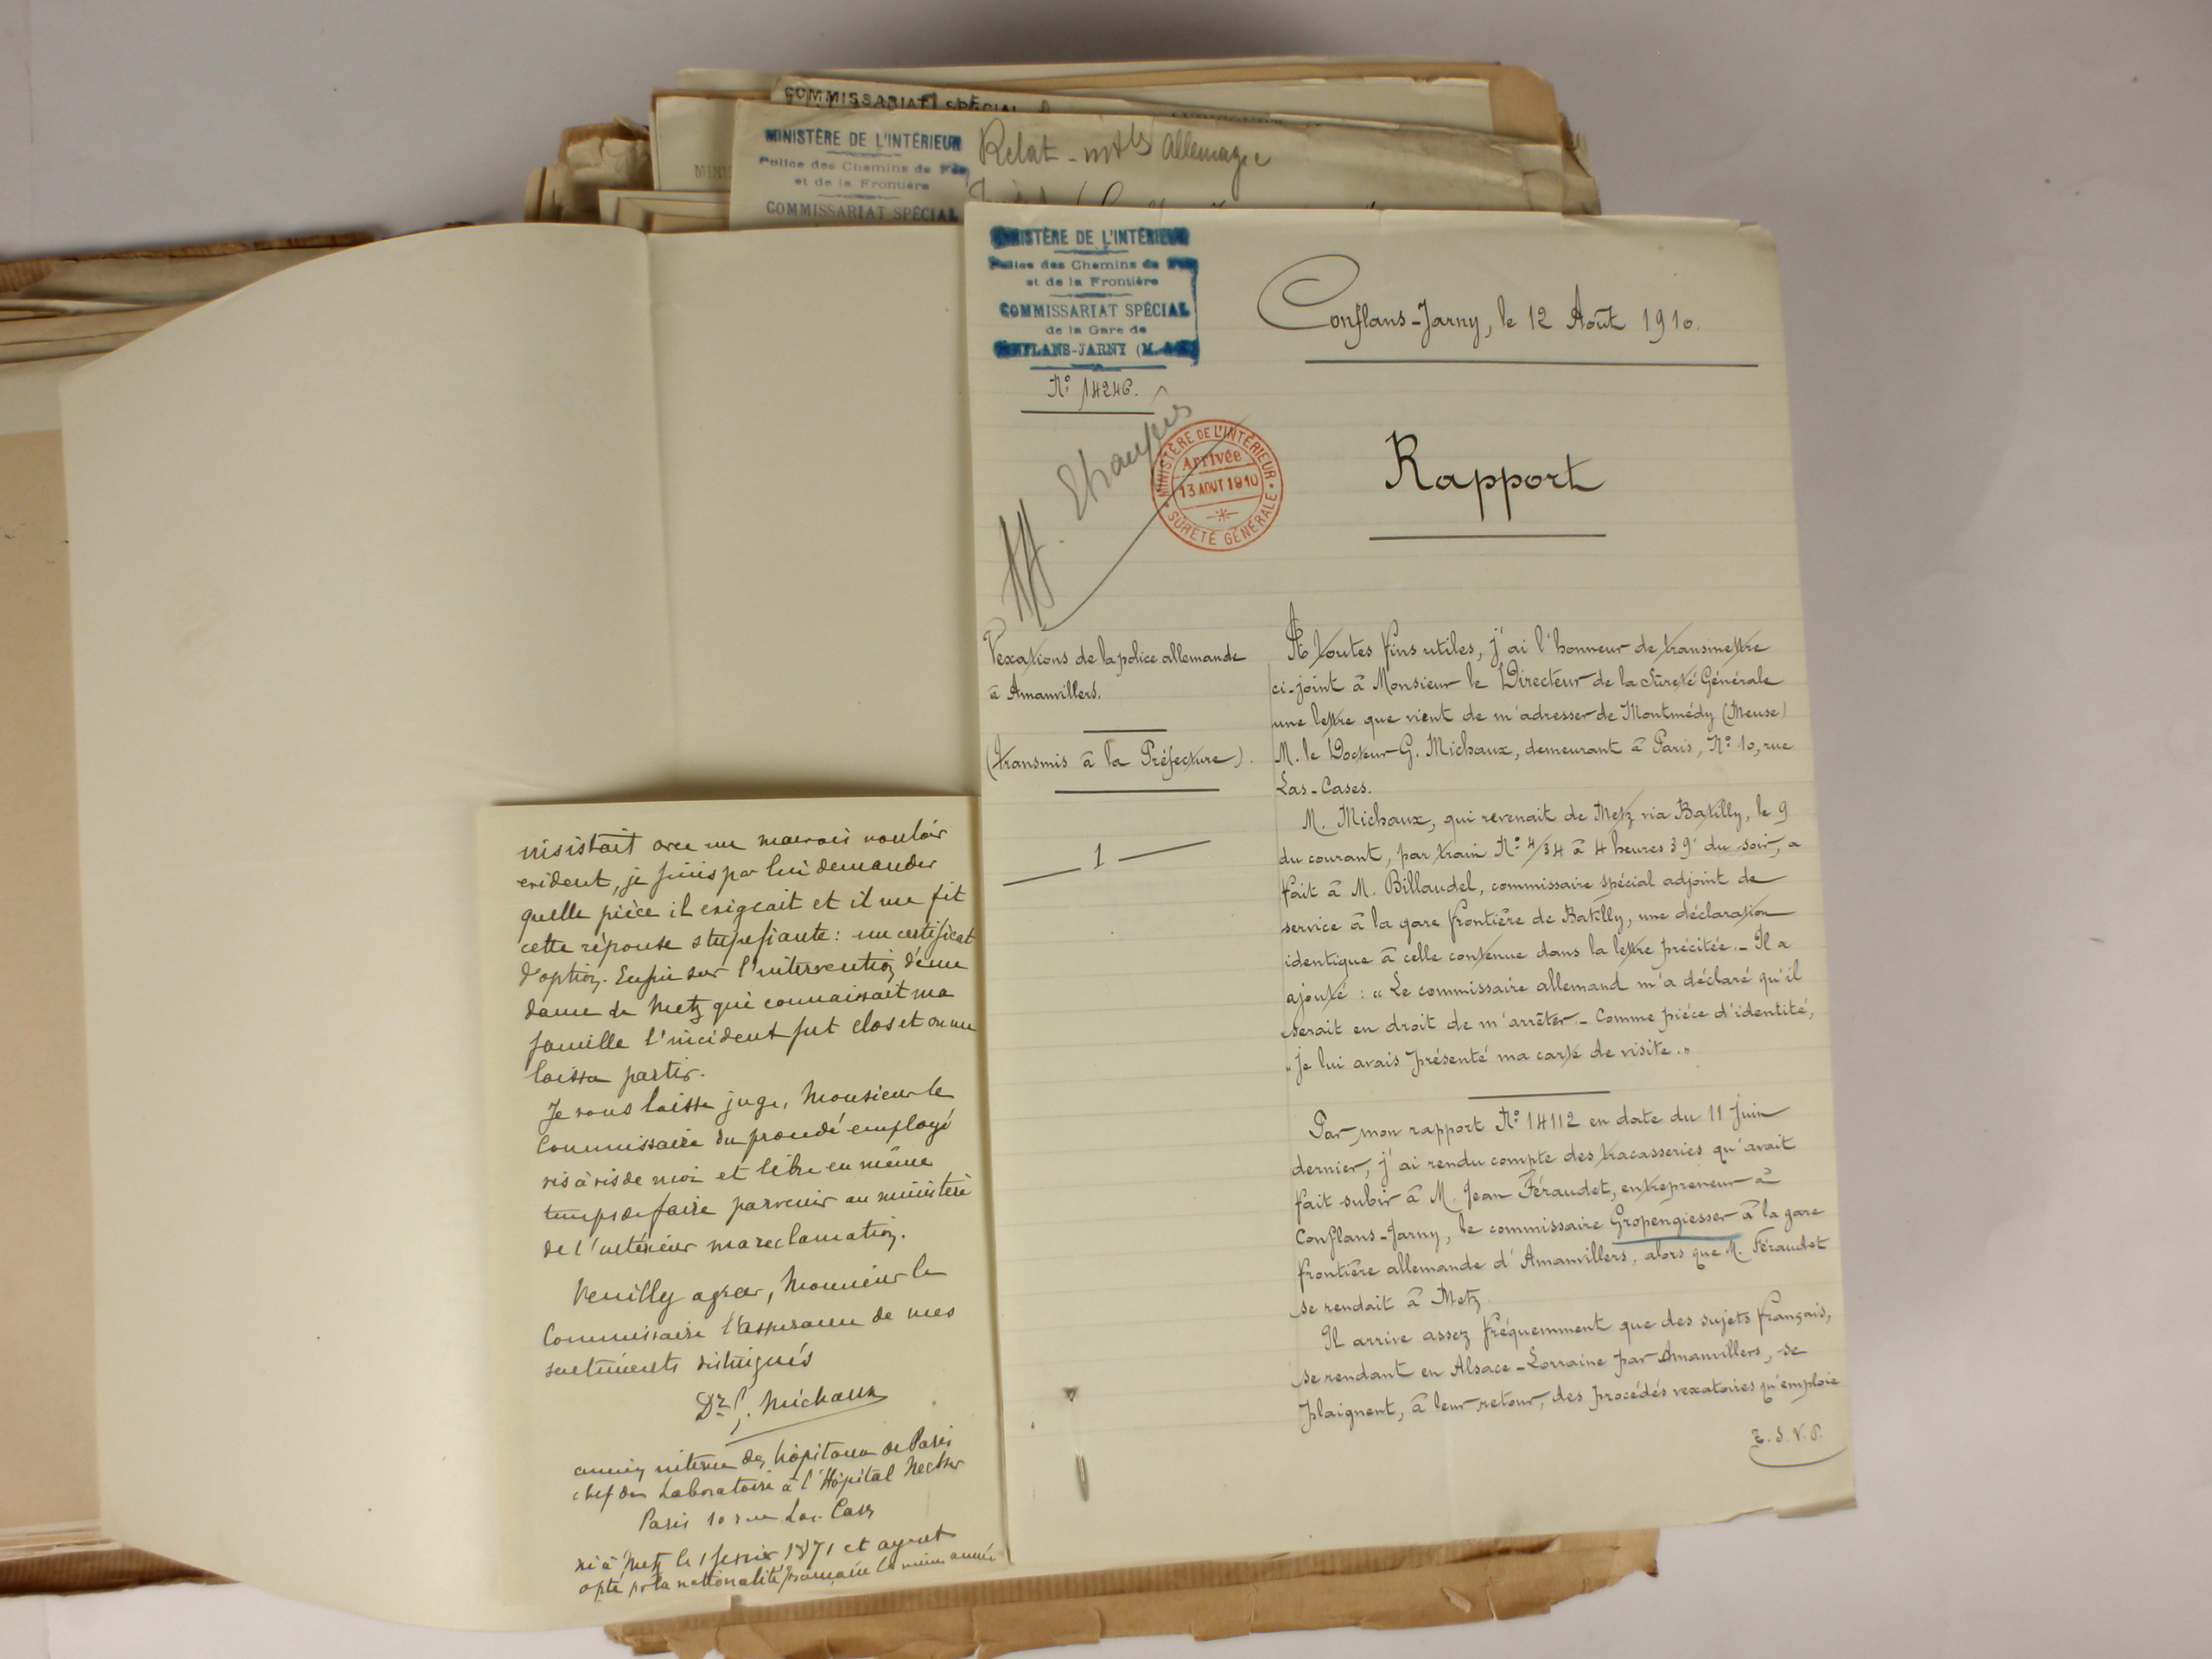 COMMISSARIAT SPÉCIAL
MINISTÈRE DE L'INTÉRIEUR
Police des Chemins de Fer
et de la Frontière
COMMISSARIAT SPÉCIAL
Relat-ntles Allemagne
MINISTÈRE DE L'INTÉRIEUR
Police des Chemins de Fer
et de la Frontière
COMMISSARIAT SPÉCIAL
de la Gare de
CONFLANS-JARNY (M.
N° 14246.
Conflans-Jarny, le 12 Août 1910.
MINISTÈRE DE L'INTÉRIEUR
Arrivée
13 AOUT 1910
SÛRETÉ GÉNÉRALE
Rapport
Vexations de la police allemande
à Amanvillers.
(transmis à la Préfecture).
1
A toutes fins utiles, j'ai l'honneur de transmettre
ci-joint à Monsieur le Directeur de la Sûreté Générale
une lettre que vient de m'adresser de Montmédy (Meuse)
M. le Docteur G. Michaux, demeurant à Paris, N° 10, rue
Las-Cases.
M. Michaux, qui revenait de Metz via Batilly, le 9
du courant, par train N° 4/34 à 4 heures 39' du soir, a
fait à M. Billaudel, commissaire spécial adjoint de
service à la gare frontière de Batilly, une déclaration
identique à celle contenue dans la lettre précitée. - Il a
ajouté : « Le commissaire allemand m'a déclaré qu'il
« serait en droit de m'arrêter. - Comme pièce d'identité,
« je lui avais présenté ma carte de visite. »
Par mon rapport N° 14112 en date du 11 Juin
dernier, j'ai rendu compte des tracasseries qu'avait
fait subir à M. Jean Féraudet, entrepreneur à
Conflans-Jarny, le commissaire Gropengiesser à la gare
frontière allemande d'Amanvillers, alors que M. Féraudet
se rendait à Metz.
Il arrive assez fréquemment que des sujets français,
se rendant en Alsace-Lorraine par Amanvillers, se
plaignent, à leur retour, des procédés vexatoires qu'emploie
T.S.V.P.
insistait avec un mauvais vouloir
evident, je finis par lui demander
quelle pièce il exigeait et il me fit
cette réponse stupefiante : un certificat
d'option. Enfin sur l'intervention d'une
dame de Metz qui connaissait ma
famille l'incident fut clos et on me
laissa partir.
Je vous laisse juge, Monsieur le
Commissaire du procédé employé
vis à vis de moi et libre en même
temps de faire parvenir au ministère
de l'intérieur ma reclamation.
Veuillez agréer, Monsieur le
Commissaire l'assurance de mes
sentiments distingués
Dr G. Michaux
ancien interne des hôpitaux de Paris
chef de Laboratoire à l'Hôpital Necker
Paris 10 rue Las Cases
né à Metz le 1 fevrier 1871 et ayant
opté pr la nationalité française la même année